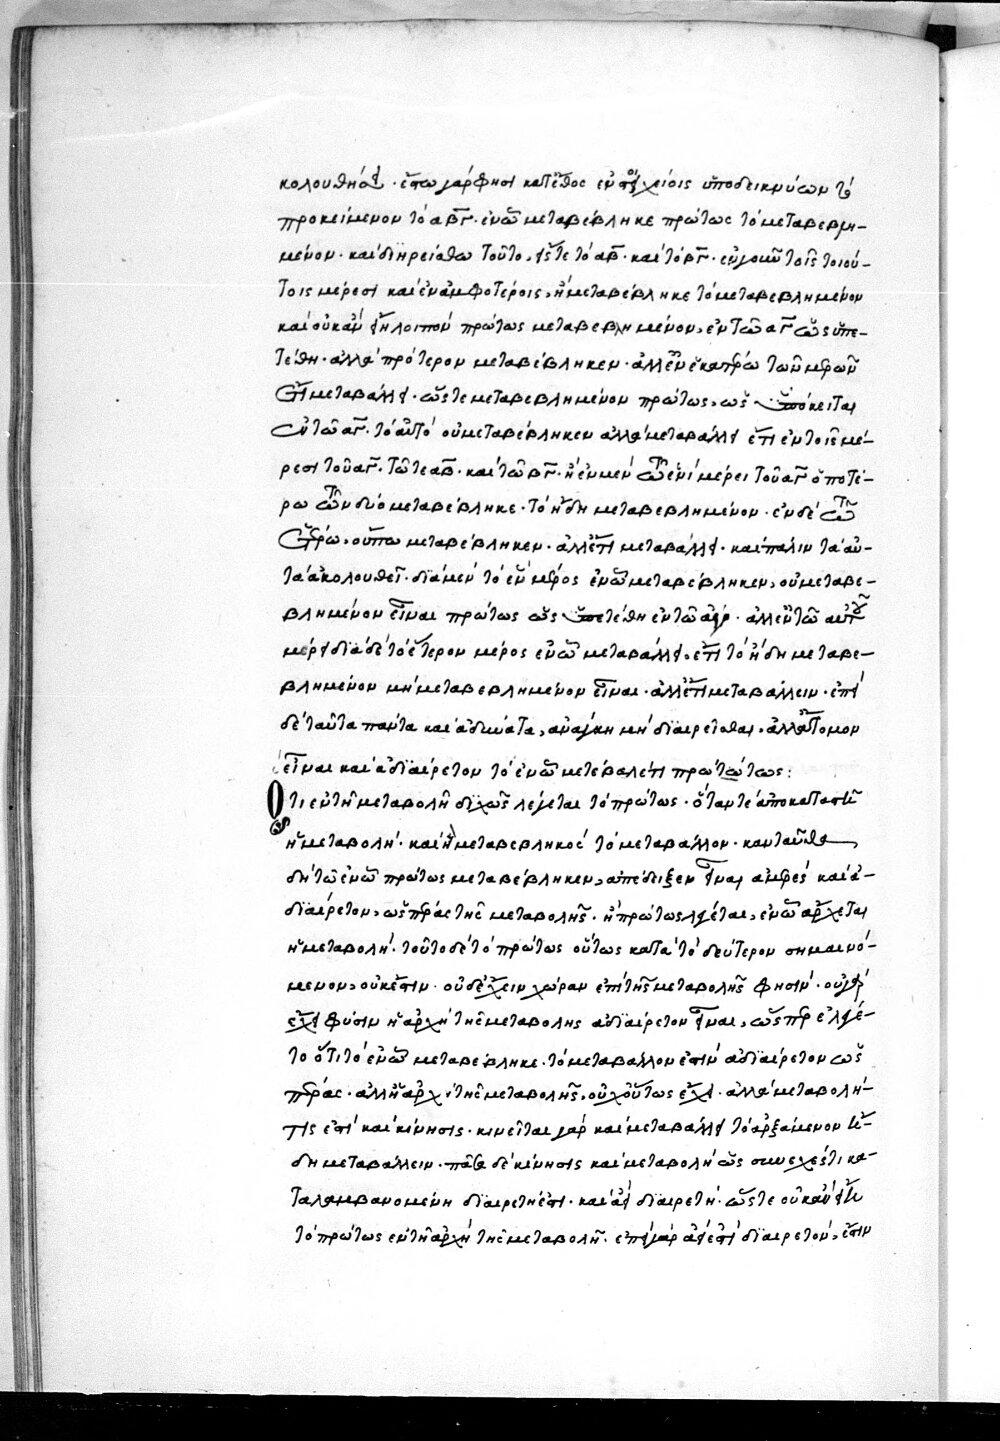 κολουθήσει · ἔστω γάρ φησι κατὰ ἔθος ἐν στοιχείοις ὑποδεικνύων τὸ
προκείμενον τὸ αβγ · ἐν ᾧ μεταβέβληκε πρώτως τὸ μεταβεβλη-
μένον · καὶ διηρείσθω τοῦτο, εἴς τε τὸ αβ · καὶ τὸ βγ · ἐν γοῦν τοῖς τοιού-
τοις μέρεσι καὶ ἐν ἀμφοτέροις, ἢ μεταβέβληκε τὸ μεταβεβλημένον
καὶ οὐκ ἂν εἴη λοιπὸν πρώτως μεταβεβλημένον, ἐν τῷ αγ ὡς ὑπε-
τέθη · ἀλλὰ πρότερον μεταβέβληκεν · ἀλλ' ἐν ἑκατέρῳ τῶν μερῶν
ἔτι μεταβάλλει · ὥστε μεταβεβλημένον πρώτως, ὡς ὑπόκειται
ἐν τῷ αγ · τὸ αὐτὸ οὐ μεταβέβληκεν ἀλλὰ μεταβάλλει ἔτι ἐν τοῖς μέ-
ρεσι τοῦ αγ · τῷ τε αβ · καὶ τῷ βγ · ἢ ἐν μὲν τῷ ἑνὶ μέρει τοῦ αγ ὁποτέ-
ρῳ τῶν δύο μεταβέβληκε · τὸ ἤδη μεταβεβλημένον · ἐν δὲ τῷ
ἑτέρῳ, οὔπω μεταβέβληκεν · ἀλλ' ἔτι μεταβάλλει · καὶ πάλιν τὰ αὐ-
τὰ ἀκολουθεῖ · διὰ μὲν τὸ ἓν μέρος ἐν ᾧ μεταβέβληκεν, οὐ μεταβε-
βλημένον εἶναι πρώτως ὡς ὑπετέθη ἐν τῷ αβγ · ἀλλ' ἐν τῷ αὐτοῦ
μέρει διὰ δὲ τὸ ἕτερον μέρος ἐν ᾧ μεταβάλλει, ἔτι τὸ ἤδη μεταβε-
βλημένον μὴ μεταβεβλημένον εἶναι · ἀλλ' ἔτι μεταβάλλειν · ἐπεὶ
δὲ ταῦτα πάντα καὶ ἀδύνατα, ἀνάγκη μὴ διαιρεῖσθαι, ἀλλ' ἄτομον
εἶναι καὶ ἀδιαίρετον τὸ ἐν ᾧ μετέβαλεν πρώτως :
Ὅτι ἐν τῇ μεταβολῇ διχῶς λέγεται τὸ πρώτως · ὅταν τε ἀποκαταστῇ
ἡ μεταβολή · καὶ ᾖ μεταβεβληκὸς τὸ μεταβάλλον · κἀνταῦθα
δὴ τῷ ἐν ᾧ πρώτως μεταβέβληκεν, ἀπέδειξεν εἶναι ἀμερὲς καὶ ἀ-
διαίρετον, ὡς πέρας τῆς μεταβολῆς · ἢ πρώτως λέγεται, ἐν ᾧ ἄρχεται
ἡ μεταβολή · τοῦτο δὲ τὸ πρώτως οὕτως κατὰ τὸ δεύτερον σημαινό-
μενον, οὐκ ἔστιν · οὐδὲ ἔχειν χώραν ἐπὶ τῆς μεταβολῆς φησιν · οὐ γὰρ
ἔχει φύσιν ἡ ἀρχὴ τῆς μεταβολῆς ἀδιαίρετον εἶναι, ὥσπερ ἐλέγε-
το ὅτι τὸ ἐν ᾧ μεταβέβληκε · τὸ μεταβάλλον ἐστὶν ἀδιαίρετον ὡς
πέρας · ἀλλ' ἡ ἀρχὴ τῆς μεταβολῆς, οὐχ οὕτως ἔχει · ἀλλὰ μεταβολή-
τις ἐστὶ καὶ κίνησις · κινεῖται γὰρ καὶ μεταβάλλει τὸ ἀρξάμενον ἤ-
δη μεταβάλλειν · πᾶσα δὲ κίνησις καὶ μεταβολὴ ὡς συνεχές τι κα-
ταλαμβανομένη διαιρετή ἐστι · καὶ ἀεὶ διαιρετή · ὥστε οὐκ ἂν εἴη
τὸ πρώτως ἐν τῇ ἀρχῇ τῆς μεταβολῆς · ἐπεὶ γὰρ ἀεί ἐστι διαιρετόν, ἔστιν